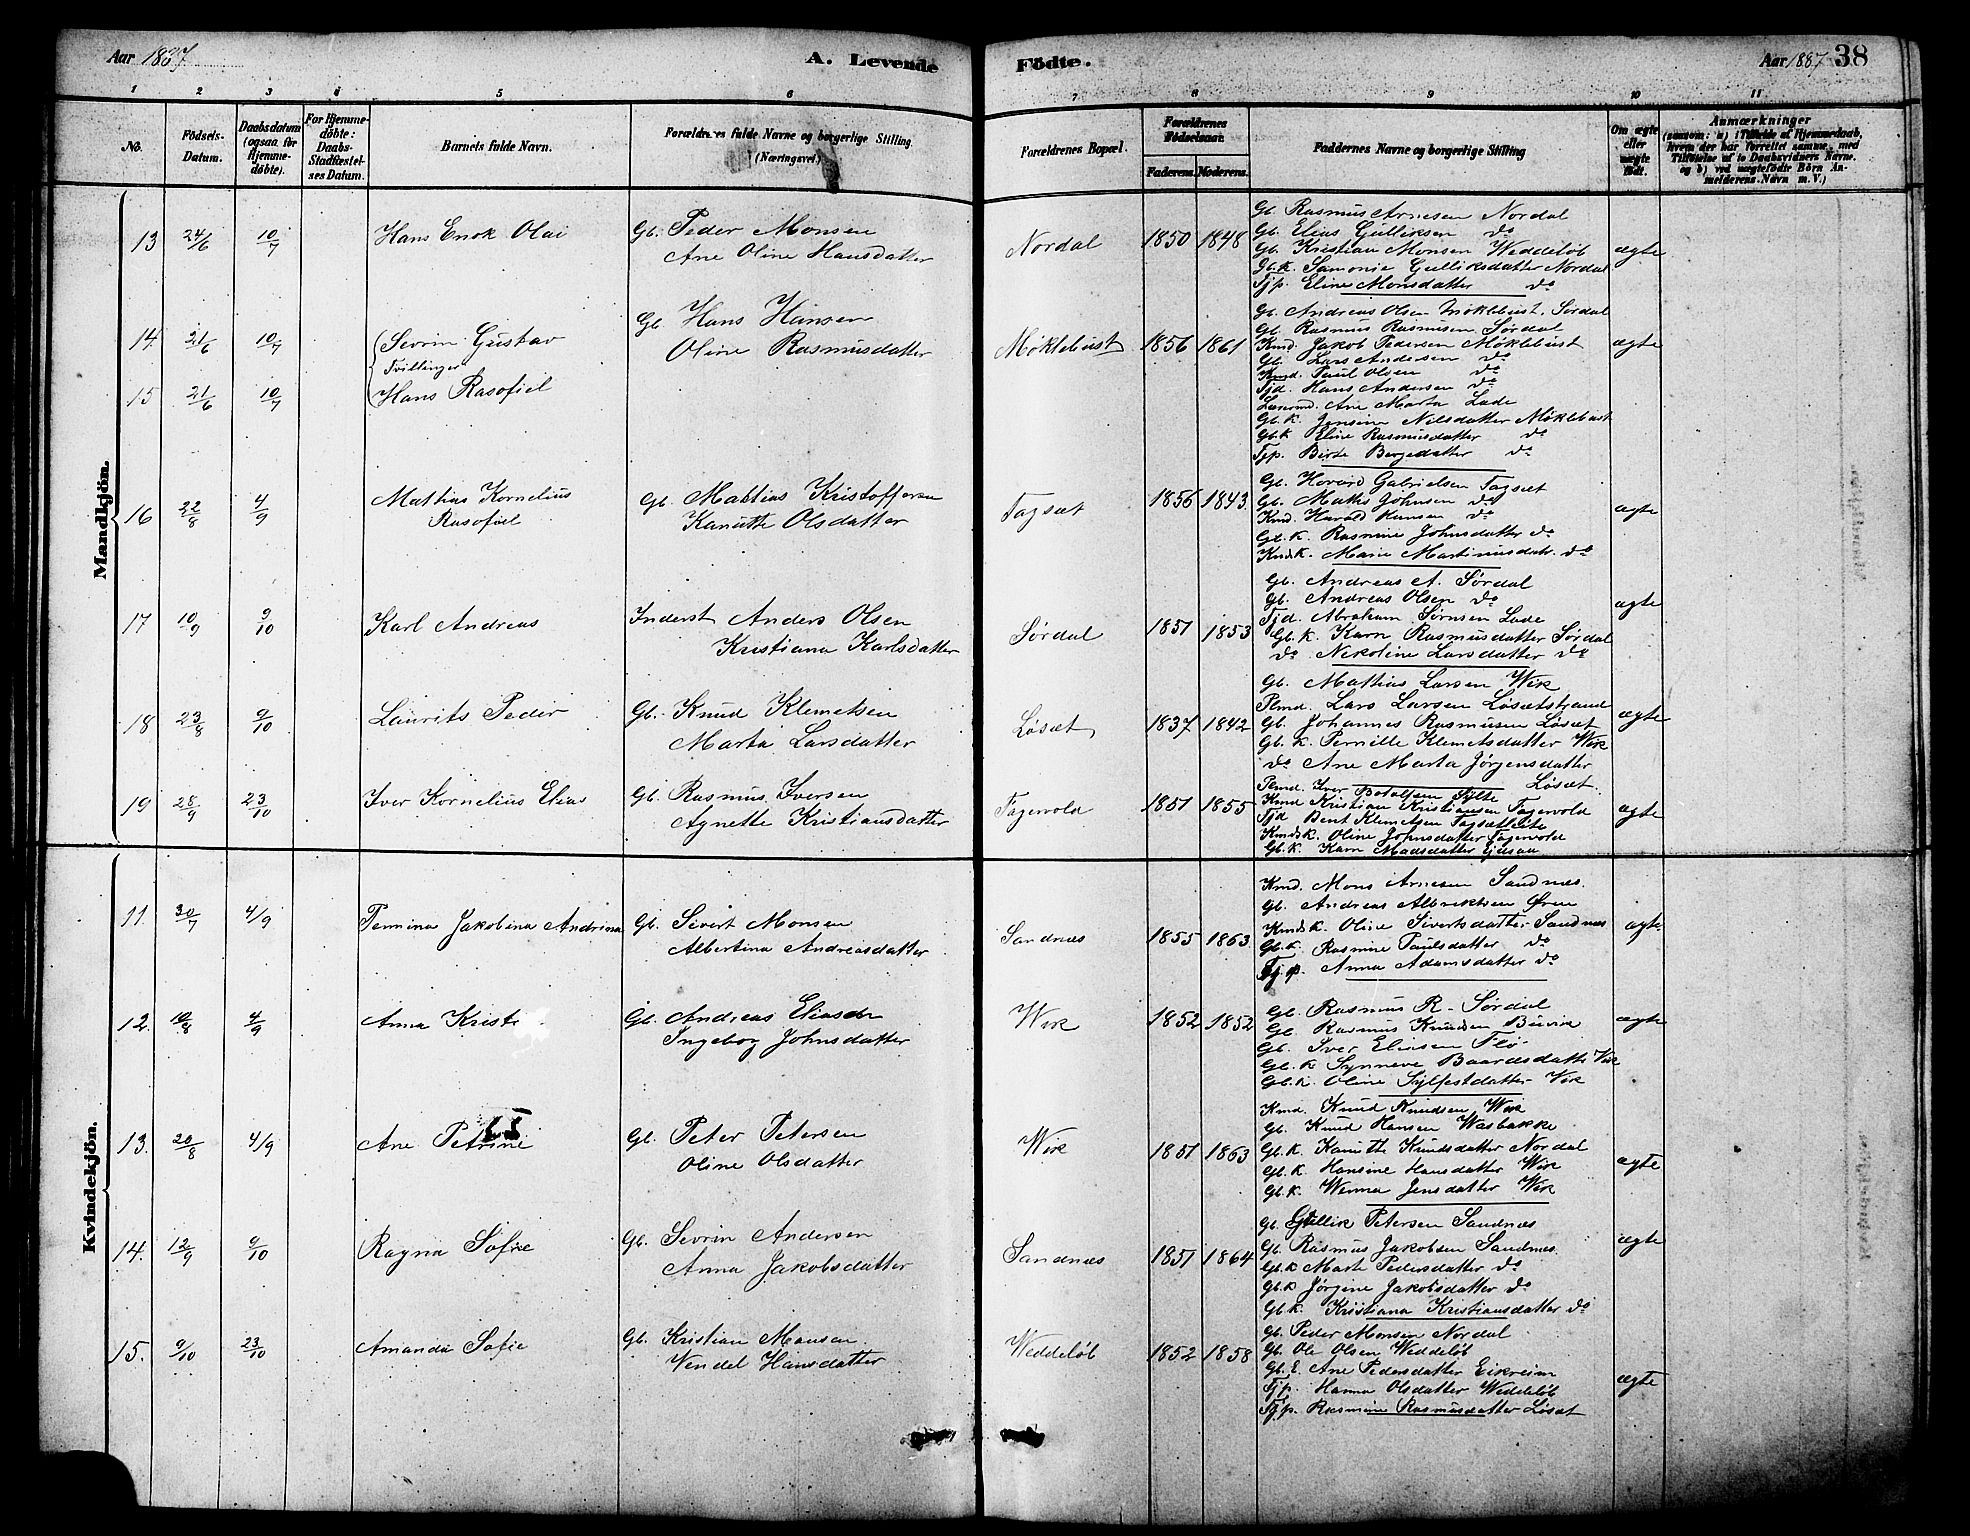 Aar 1887 A. Levende Födte. Aar 1887 38
1 2 3 4 5 6 7 8 9 10 11
No.
Födsels-Datum.
Daabsdatum (ogsaa for Hjemmedöbte).
For Hjemmedöbte: Daabs-Stadfæstelses Datum.
Barnets fulde Navn.
Forældrenes fulde Navne og borgerlige Stilling (Næringsvei).
Forældrenes Bopæl.
Forældrenes Födselsaar.
Faderens. Moderens.
Faddernes Navne og borgerlige Stilling
Om ægte eller uægte födt.
Anmærkninger
(saasom: a) i Tilfælde af Hjemmedaab, hvem der har forrettet samme, med Tilföielse af to Daabsvidners Navne, og b) ved uægtefödte Börn Anmelderens Navn m. V.)
Mandkjön.
13 24/6 10/7 Hans Enok Olai Gb. Peder Monsen
Ane Oline Hansdatter
Nordal 1850 1848 ægte
Gb. Rasmus Arnesen Nordal
Gb. Elias Gulliksen do
Gb. Kristian Monsen Weddeløb
Gb.k. Samonie Gulliksdatter Nordal
Tjp. Eline Monsdatter do
14 21/6 10/7 Sevrin Gustav
Tvillinger
15 21/6 10/7 Hans Rasofiel
Gb. Hans Hansen
Oline Rasmusdatter
Møklebust 1856 1861 ægte
Gb. Andreas Olsen Møklebust. Sørdal
Gb. Rasmus Rasmusen Sørdal
Kmd. Jakob Pedersen Møklebust
Gb. Lars Andersen do
Kmd. Paul Olsen do
Tjd. Hans Andersen do
Ane Marta Lade
Gb.k. Jensine Nilsdatter Møklebust
Gb.k Eline Rasmusdatter do
Tjp. Birte Bergedatter do
16 22/8 4/9 Mathias Kornelius
Rasofiel
Gb. Mattias Kristoffersen
Kanutte Olsdatter
Fagsæt 1856 1843. ægte
Gb. Hovard Gabrielsen Fagsæt
Gb. Maths Johnsen do
Kmd. Harald Hansen do
Gb.k. Rasmine Johnsdatter do
Kmdk. Marie Martinusdatr. do
17 10/9 9/10 Karl Andreas Inderst Anders Olsen
Kristiana Karlsdatter
Sørdal 1851 1853 ægte
Gb. Andreas A. Sørdal
Gb. Andreas Olsen do
Tjd. Abraham Sørnsen Lade
Gb.k. Karn Rasmusdatter Sørdal
do Nikoline Larsdatter do
18 23/8 9/10 Laurits Peder Gb. Knud Klemetsen
Marta Larsdatter
Løsæt 1837 1842 ægte
Gb. Mattias Larsen Wik
Plmd. Lars Larsen Løsætstrand
Gb. Johannes Rasmusen Løsæt
Gb.k. Pernille Klemetsdatter Wik
do Ane Marta Jørgensdatter
Løsæt.
19 28/9 23/10 Iver Kornelius Elias Gb. Rasmus Iversen
Agnette Kristiansdatter
Fagervold 1851 1855 ægte
Plmd. Iver Botolfsen Sylte
Kmd Kristian Kristiansen Fagervold
Tjd Bent Klemetsen Fagsætlite
Kmdk. Oline Johnsdatter Fagervold
Gb.k. Karn Madsdatter
Kvindekjön.
11. 30/7 4/9 Pernina Jakobina Andrina Gb. Sivert Monsen
Albertina Andreasdatter
Sandnæs 1855 1863 ægte
Kmd. Mons Arnesen Sandnæs.
Gb. Andreas Albriktsen Øren
Kmdk. Oline Sivertsdatter Sandnæs
Gb.k. Rasmine Paulsdatter do
Tjp. Anna Adamsdatter do
12. 10/8 4/9 Anna Kristi Gb. Andreas Eliasen
Ingebor Johnsdatter
Wik 1852 1852 ægte
Gb. Rasmus R. Sørdal
Gb. Rasmus Knudsen Buvik
Gb. Iver Eliasen Flø
Gb.k Synneve Baardsdatter Wik
Gb.k. Oline Sylfestdatter Wik
13. 20/8 4/9 Ane Petrine Gb. Peter Petersen
Oline Olsdatter
Wik 1851 1863 ægte
Kmd. Knud Knudsen Wik
Gb. Knud Hansen Wasbakke
Gb.k. Kanutte Knudsdatter Nordal
Gb.k. Hansine Hansdatter Wik
Gb.k. Werina Jensdatter Wik
14. 12/9 9/10 Ragna Sofie Gb. Sevrin Andersen
Anna Jakobsdatter
Sandnæs 1851 1864 ægte
Gb. Gullik Petersen Sandnæs
Gb. Rasmus Jakobsen Sandnæs.
Gb.k Marte Pedersdatter do
Gb.k Jørgine Jakobsdatter do
Gb.k. Kristiana Kristiansdatter do
15. 9/10 23/10 Amanda Sofie Gb. Kristian Monsen
Vendel Hansdatter
Weddeløb 1852 1858 ægte
Gb. Peder Monsen Nordal
Gb. Ole Olsen Weddeløb
Gb.E. Ane Pedersdatter Eikreim
Tjp. Hanna Olsdatter Weddeløb
Tjp. Rasmine Rasmusdatter Løsæt